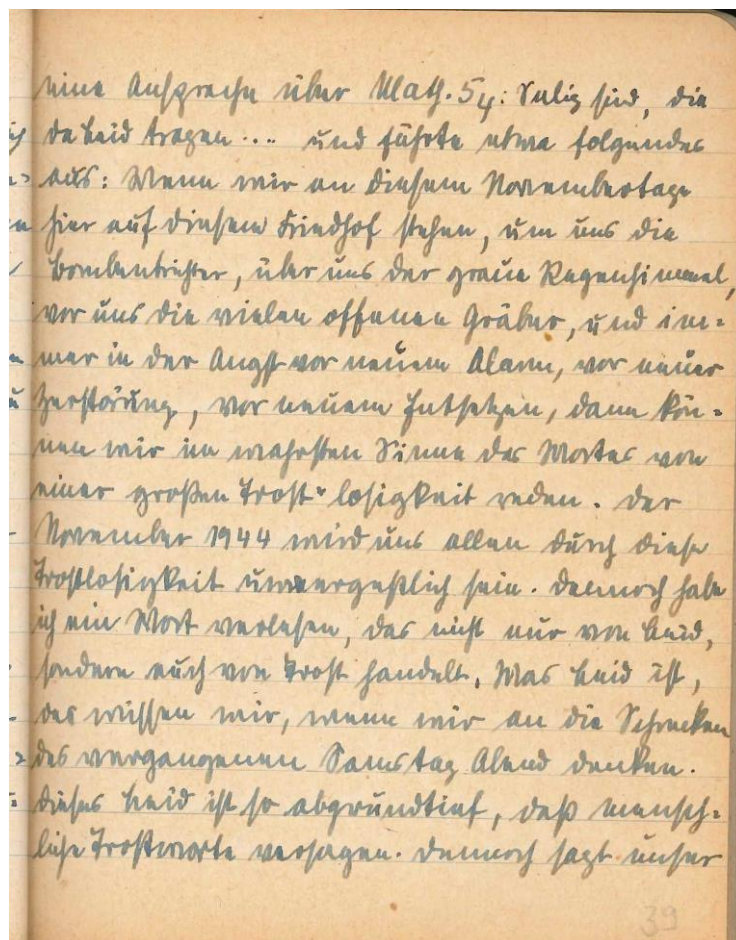 eine Ansprache über Math. 5,4: Selig sind, die
da Leid tragen... und führte etwa folgendes
aus: Wenn wir an diesem Novembertage
hier auf diesem Friedhof stehen, um uns die
Bombentrichter, über uns der graue Regenhimmel,
vor uns die vielen offenen Gräber, und im-
mer in der Angst vor neuem Alarm, vor neuer
Zerstörung, vor neuem Entsetzen, dann kön-
nen wir im wahrsten Sinne des Wortes von
einer großen Trost"losigkeit reden. Der
November 1944 wird uns allen durch diese
Trostlosigkeit unvergeßlich sein. Dennoch habe
ich ein Wort verlesen, das nicht nur von Leid,
sondern auch von Trost handelt. Was Leid ist,
das wissen wir, wenn wir an die Schrecken
des vergangenen Samstag Abend denken.
Dieses Leid ist so abgrundtief, daß mensch-
liche Trostworte versagen. Dennoch sagt unser
39